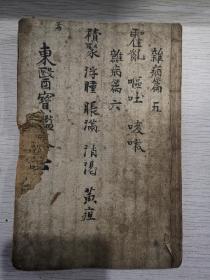 雜病篇 五
霍亂 嘔吐 咳嗽
雜病篇 六
積聚 浮腫 脹滿 消渴 黃疸
東醫寶鑑